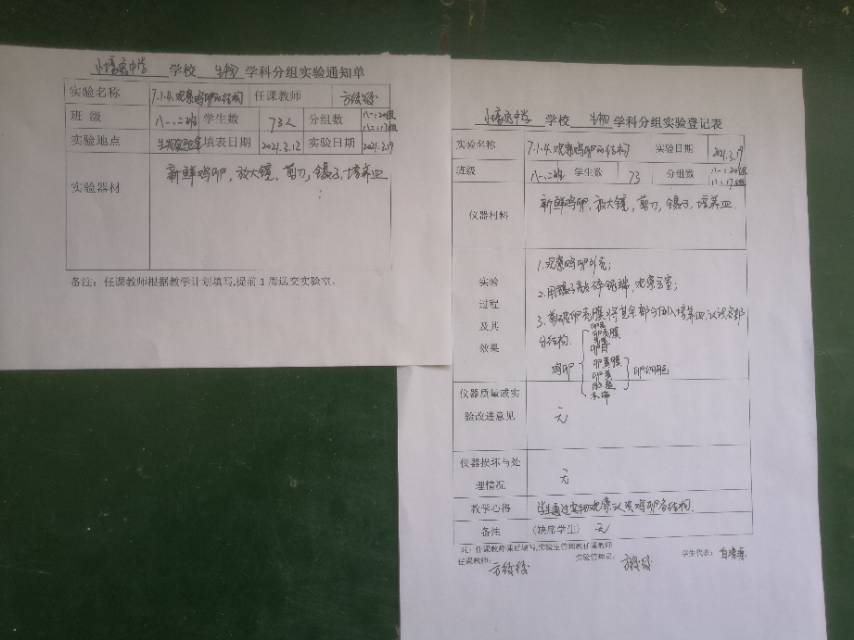 学校 生物 学科分组实验通知单
实验名称 7.1.4.观察鸡卵的结构 任课教师
班级 八一、二班 学生数 73人 分组数 八一:20组
八二:17组
实验地点 生物实验室 填表日期 2021.3.12 实验日期 2021.3.19
实验器材 新鲜鸡卵、放大镜、剪刀、镊子、培养皿
备注：任课教师根据教学计划填写,提前1周送交实验室.
学校 生物 学科分组实验登记表
实验名称 7.1.4.观察鸡卵的结构 实验日期 2021.3.19
班级 八一、二班 学生数 73 分组数 八一:20组
八二:17组
仪器材料 新鲜鸡卵、放大镜、剪刀、镊子、培养皿.
实验
过程
及其
效果
1.观察鸡卵外壳;
2.用镊子敲碎钝端,观察气室;
3.剪破卵壳膜,将其余部分倒入培养皿,认识各部
分结构.
鸡卵
卵壳
卵壳膜
气室
卵白
卵黄膜
卵黄
胚盘
系带
卵细胞
仪器质量或实
验改进意见 无
仪器损坏与处
理情况 无
教学心得 学生通过实物观察,认识鸡卵各结构.
备注 (缺席学生) 无
注：任课教师课后填写,实验室管理教任课教师
任课教师: 实验管理员: 学生代表: